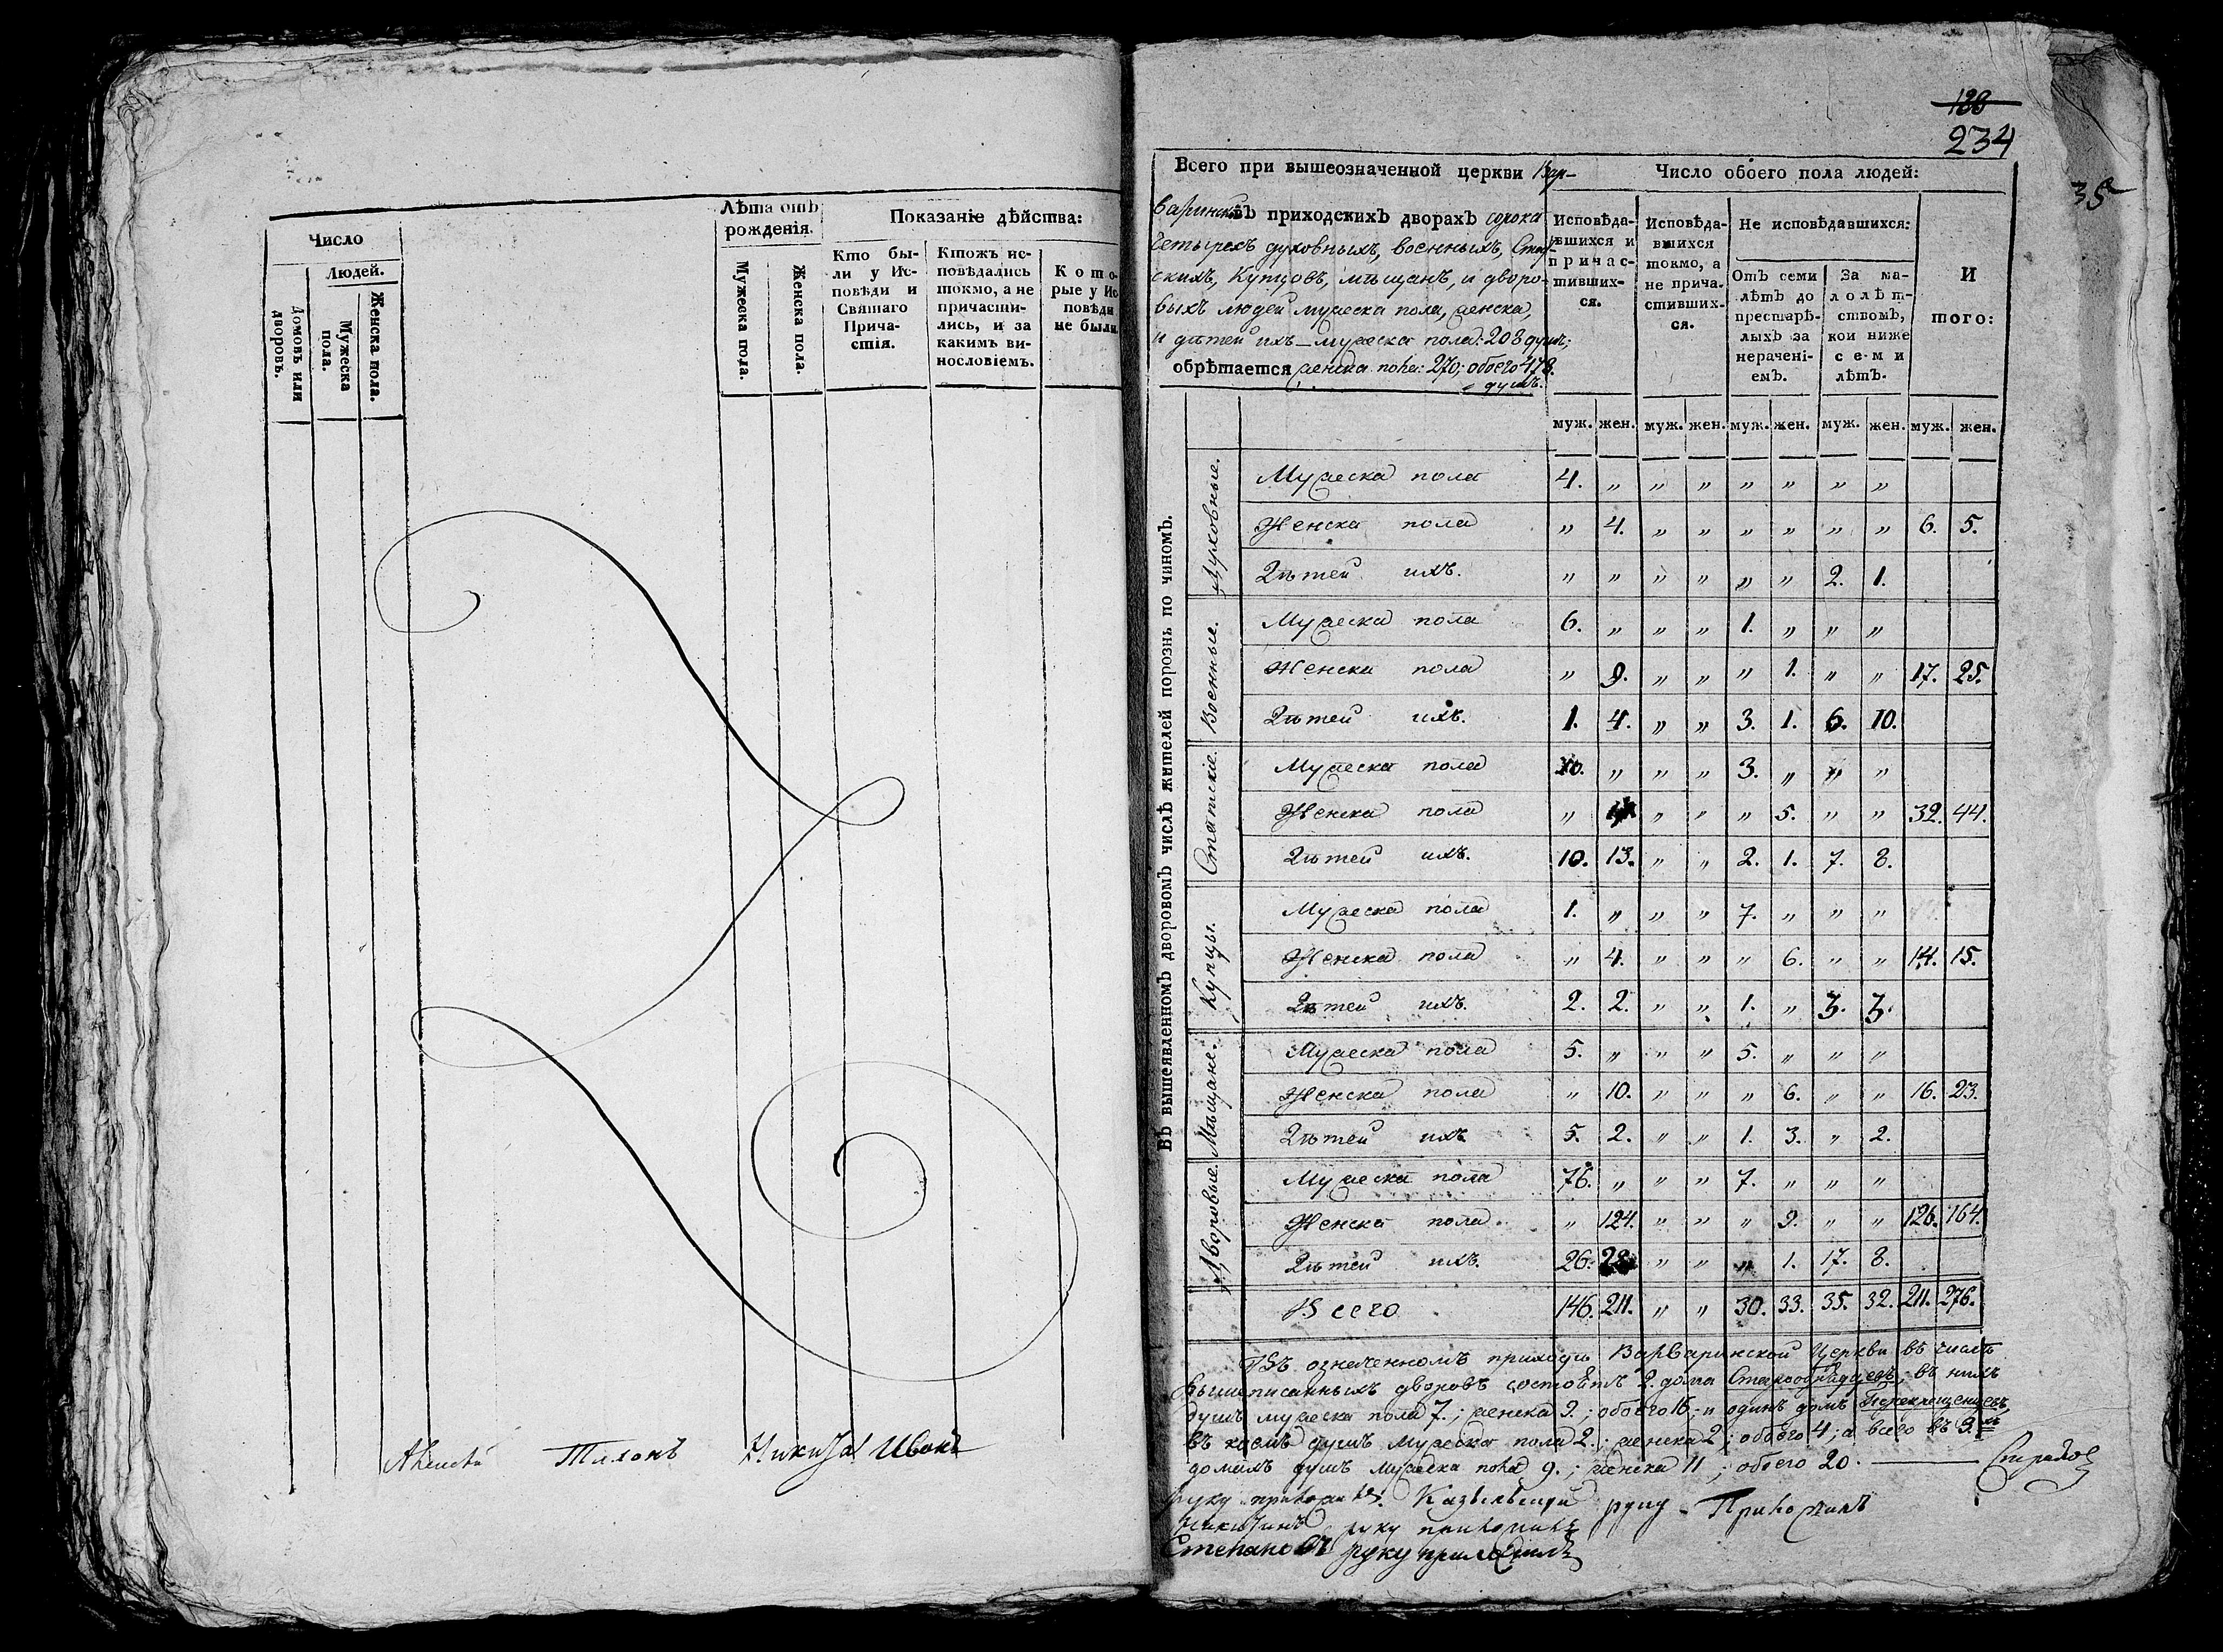 Число
Людей.
Домовъ или дворовъ.
Мужеска пола.
Женска пола.
Лѣта отъ рожденія.
Мужеска пола.
Женска пола.
Показаніе дѣйства:
Кто бы-
ли у Ис-
повѣди и
Святаго
Прича-
стія.
Ктожъ ис-
повѣдались
токмо, а не
причасти-
лись, и за
какимъ ви-
нословіемъ.
Кото-
рые у Ис
повѣди
не были.
Тихонъ Никита Ивонъ
188
234
35
Всего при вышеозначенной церкви Вар-
варинской въ приходскихъ дворахъ сорока
четырехъ духовныхъ, военныхъ, Стат-
скихъ, Купцовъ, мѣщанъ, и дворо-
выхъ людей мужеска пола, женска,
и дѣтей ихъ – мужеска пола: 208 душъ;
обрѣтается женска пола: 270; обоего 478.
душъ.
Число обоего пола людей:
Исповѣда-
вшихся и
причас-
тивших-
ся.
Исповѣда-
вшихся
токмо, а
не прича-
стивших-
ся.
Не исповѣдавшихся:
Отъ семи
лѣтъ до
престарѣ-
лыхъ за
нерачені-
емъ.
За ма-
лолѣт-
ствомъ,
кои ниже
семи
лѣтъ.
И
того:
муж. жен. муж. жен. муж. жен. муж. жен. муж. жен.
Въ вышеявленномъ дворовомъ числѣ жителей порознь по чиномъ.
Духовные.
Мужеска пола 4. „ „ „ „ „ „ „
Женска пола „ 4. „ „ „ „ „ „ 6. 5.
Дѣтей ихъ. „ „ „ „ „ „ 2. 1.
Военные.
Мужеска пола 6. „ „ „ 1. „ „ „
Женска пола „ 9. „ „ „ 1. „ „ 17. 25.
Дѣтей ихъ. 1. 4. „ „ 3. 1. 6. 10.
Статскіе.
Мужеска пола 10. „ „ „ 3. „ „ „
Женска пола „ „ „ „ 5. „ „ 32. 44.
Дѣтей ихъ. 10. 13. „ „ 2. 1. 7. 8.
Купцы.
Мужеска пола 1. „ „ „ 7. „ „ „
Женска пола „ 4. „ „ „ 6. „ „ 14. 15.
Дѣтей ихъ. 2. 2. „ „ 1. „ 3. 3.
Мѣщане.
Мужеска пола 5. „ „ „ 5. „ „ „
Женска пола „ 10. „ „ „ 6. „ „ 16. 23.
Дѣтей ихъ 5. 2. „ „ 1. 3. „ 2.
Дворовые.
Мужеска пола 76. „ „ „ 7. „ „ „
Женска пола „ 124. „ „ „ 9. „ „ 126. 164.
Дѣтей ихъ. 26. „ „ „ 1. 17. 8.
Всего 146. 211. „ „ 30. 33. 35. 32. 211. 276.
Въ означенномъ приходѣ Варваринской Церкви въ числѣ
вышеписанныхъ дворовъ состоитъ 2. дома Старообрядцевъ, въ нихъ
душъ мужеска пола 7.; женска 9.; обоего 16; и одинъ домъ Перекрещенцевъ,
въ коемъ душъ мужеска пола 2.; женска 2; обоего 4; а всего въ 3.хъ
домахъ душъ мужеска пола 9.; женска 11; обоего 20.
руку
руку приложилъ
Степановъ руку приложилъ